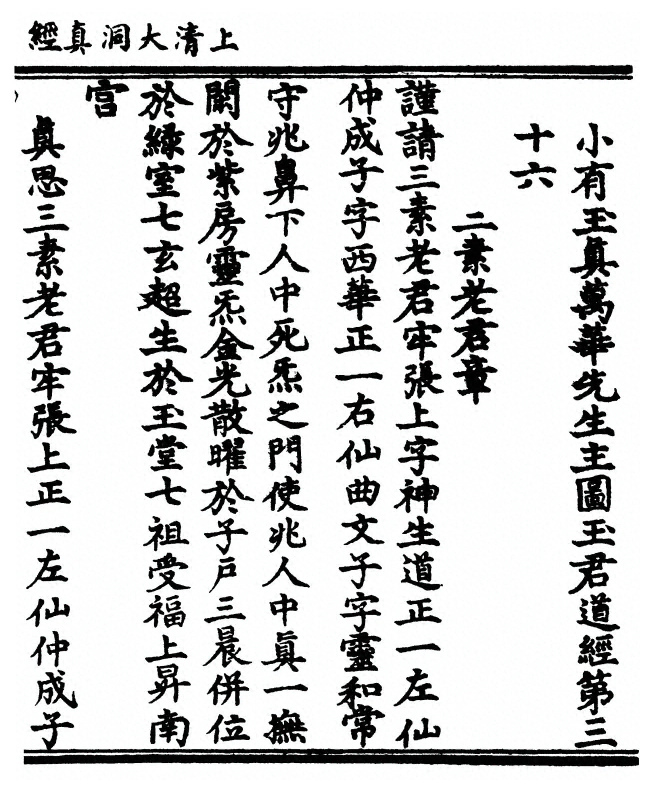 上清大洞真經
小有玉真萬華先生主圖玉君道經第三
十六
二素老君章
謹請三素老君牢張上字神生道正一左仙
仲成子字西華正一右仙曲文子字靈和常
守兆鼻下人中死炁之門使兆人中真一撫
闕於紫房靈炁金光散曜於子戶三晨併位
於綠室七玄超生於玉堂七祖受福上昇南
宫
真思三素老君牢張上正一左仙仲成子